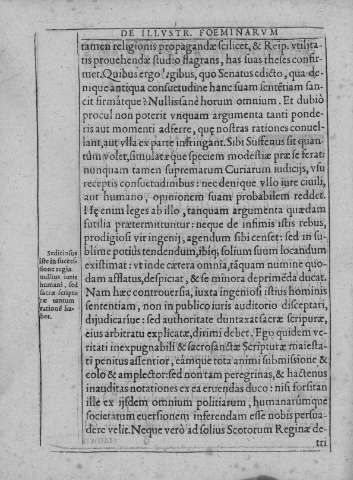 DE ILLVSTR. FOEMINARVM
tamen religionis propagandæ scilicet, & Reip. vtilita-
tis prouehendæ studio flagrans, has suas theses confir-
met. Quibus ergo legibus, quo Senatus edicto, qua de-
nique antiqua consuetudine hanc suam sentētiam san-
cit firmátque? Nullis sanè horum omnium. Et dubiò
procul non poterit vnquam argumenta tanti ponde-
ris aut momenti adferre, quę nostras rationes conuel-
lant, aut vlla ex parte infringant. Sibi Suffenus sit quan-
tùm volet, simulatæque speciem modestiæ præ se ferat:
nunquam tamen supremarum Curiarum iudicijs, vsu
receptis consuetudinibus: nec denique vllo iure ciuili,
aut humano, opinionem suam probabilem reddet.
Hę enim leges ab illo, tanquam argumenta quædam
futilia prætermittuntur: neque de infimis istis rebus,
prodigiosi vir ingenij, agendum sibi censet: sed in su-
blime potiùs tendendum, ibiq; solium suum locandum
existimat: vt inde cætera omnia, tāquam numine quo-
dam afflatus, despiciat, & se minora deprimēda ducat.
Nam hæc controuersia, iuxta ingeniosi istius hominis
sententiam, non in publico iuris auditorio disceptari,
dijudicariue: sed authoritate duntaxat sacræ scripturæ,
eius arbitratu explicatæ, dirimi debet. Ego quidem ve-
ritati inexpugnabili & sacrosanctæ Scripturæ maiesta-
ti penitus assentior, eámque tota animi submissione &
colo & amplector: sed non tam peregrinas, & hactenus
inauditas notationes ex ea eruendas duco: nisi forsitan
ille ex ijsdem omnium politiarum, humanarúmque
societatum euersionem inferendam esse nobis persua-
dere velit. Neque verò ad solius Scotorum Reginæ de-
tri
Seditiosus
iste in succes-
sione regia
nullius iuris
humani, sed
sacræ scriptu
ræ tantùm
rationē ha-
bet.